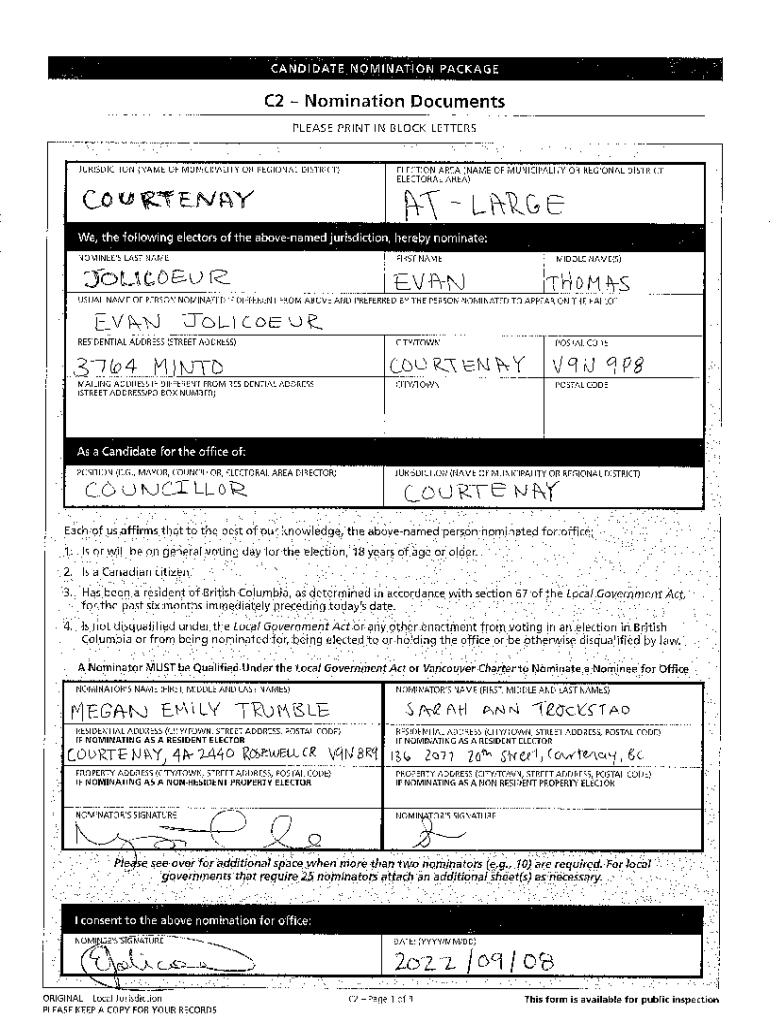 CANDIDATE NOMINATION PACKAGE
C2 – Nomination Documents
PLEASE PRINT IN BLOCK LETTERS
JURISDICTION (NAME OF MUNICIPALITY OR REGIONAL DISTRICT) ELECTION AREA (NAME OF MUNICIPALITY OR REGIONAL DISTRICT
ELECTORAL AREA)
COURTENAY AT-LARGE
We, the following electors of the above-named jurisdiction, hereby nominate:
NOMINEE'S LAST NAME FIRST NAME MIDDLE NAME(S)
JOLICOEUR EVAN THOMAS
USUAL NAME OF PERSON NOMINATED IF DIFFERENT FROM ABOVE AND PREFERRED BY THE PERSON NOMINATED TO APPEAR ON THE BALLOT
EVAN JOLICOEUR
RESIDENTIAL ADDRESS (STREET ADDRESS) CITY/TOWN POSTAL CODE
3764 MINTO COURTENAY V9N 9P8
MAILING ADDRESS IF DIFFERENT FROM RESIDENTIAL ADDRESS CITY/TOWN POSTAL CODE
(STREET ADDRESS/PO BOX NUMBER)
As a Candidate for the office of:
POSITION (E.G., MAYOR, COUNCILLOR, ELECTORAL AREA DIRECTOR) JURISDICTION (NAME OF MUNICIPALITY OR REGIONAL DISTRICT)
COUNCILLOR COURTENAY
Each of us affirms that to the best of our knowledge, the above-named person nominated for office:
1. Is or will be on general voting day for the election, 18 years of age or older.
2. Is a Canadian citizen.
3. Has been a resident of British Columbia, as determined in accordance with section 67 of the Local Government Act,
for the past six months immediately preceding today's date.
4. Is not disqualified under the Local Government Act or any other enactment from voting in an election in British
Columbia or from being nominated for, being elected to or holding the office or be otherwise disqualified by law.
A Nominator MUST be Qualified Under the Local Government Act or Vancouver Charter to Nominate a Nominee for Office
NOMINATOR'S NAME (FIRST, MIDDLE AND LAST NAMES) NOMINATOR'S NAME (FIRST, MIDDLE AND LAST NAMES)
MEGAN EMILY TRUMBLE SARAH ANN TROCKSTAD
RESIDENTIAL ADDRESS (CITY/TOWN, STREET ADDRESS, POSTAL CODE) RESIDENTIAL ADDRESS (CITY/TOWN, STREET ADDRESS, POSTAL CODE)
IF NOMINATING AS A RESIDENT ELECTOR IF NOMINATING AS A RESIDENT ELECTOR
COURTENAY, 4A-2440 ROSEWELL CR V9N 8R9 136 2077 20th Street, Courtenay, BC
PROPERTY ADDRESS (CITY/TOWN, STREET ADDRESS, POSTAL CODE) PROPERTY ADDRESS (CITY/TOWN, STREET ADDRESS, POSTAL CODE)
IF NOMINATING AS A NON-RESIDENT PROPERTY ELECTOR IF NOMINATING AS A NON RESIDENT PROPERTY ELECTOR
NOMINATOR'S SIGNATURE NOMINATOR'S SIGNATURE
Please see over for additional space when more than two nominators (e.g., 10) are required. For local
governments that require 25 nominators attach an additional sheet(s) as necessary.
I consent to the above nomination for office:
NOMINEE'S SIGNATURE DATE: (YYYY/MM/DD)
EJolicoeur 2022/09/08
ORIGINAL Local Jurisdiction C2 – Page 1 of 3 This form is available for public inspection
PLEASE KEEP A COPY FOR YOUR RECORDS